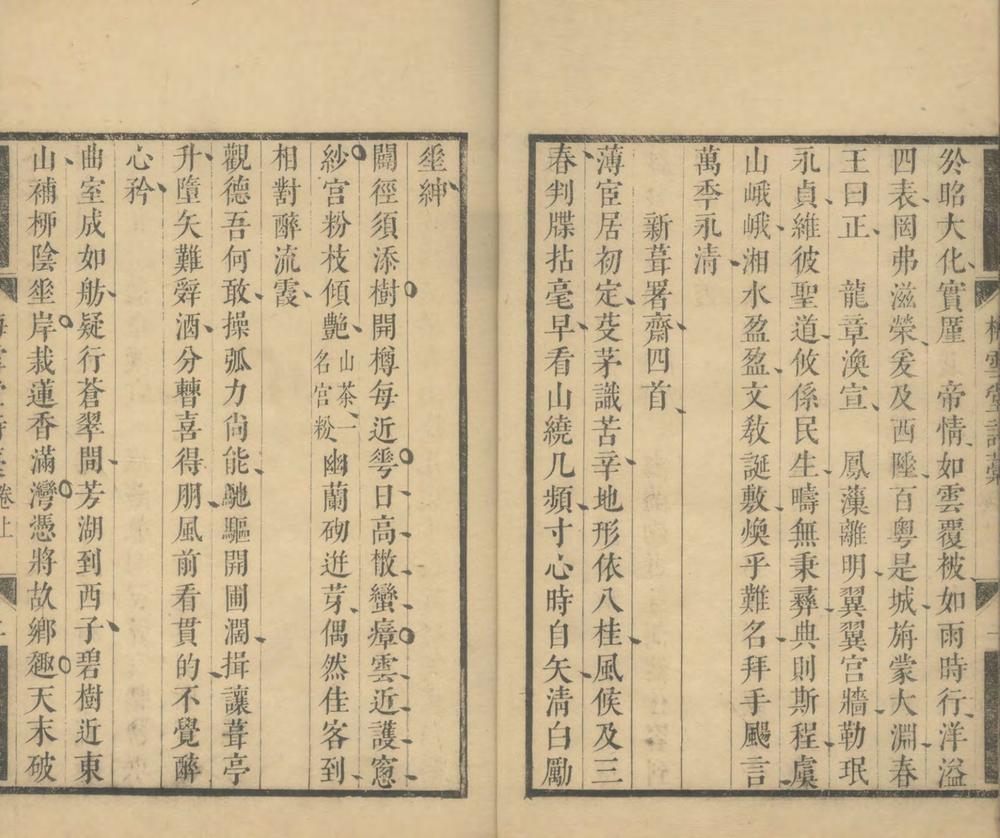 於昭大化實厪　帝情如雲覆被如雨時行洋溢
四表罔弗滋榮爰及西陲百粵是城旃蒙大淵春
王曰正　龍章渙宣　鳳藻離明翼翼宫牆勒珉
永貞維彼聖道攸係民生疇無秉彝典則斯程虞
山峨峨湘水盈盈文敎誕敷煥乎難名拜手颺言
萬秊永清
新葺署齋四首
薄宦居初定茇茅識苦辛地形依八桂風候及三
春判牒拈毫早看山繞几頻寸心時自矢淸白勵
垂紳
闢徑須添樹開樽每近雩日高散蠻瘴雲近護窻
紗宫粉枝傾艷山茶一名宫粉幽蘭砌迸芽偶然佳客到
相對醉流霞
觀德吾何敢操弧力尙能馳驅開圃濶揖讓葺亭
升墮矢難辭酒分曹喜得朋風前看貫的不覺醉
心矜
曲室成如舫疑行蒼翠間芳湖到西子碧樹近東
山補柳陰垂岸栽蓮香滿灣憑將故鄉趣天末破
卷上